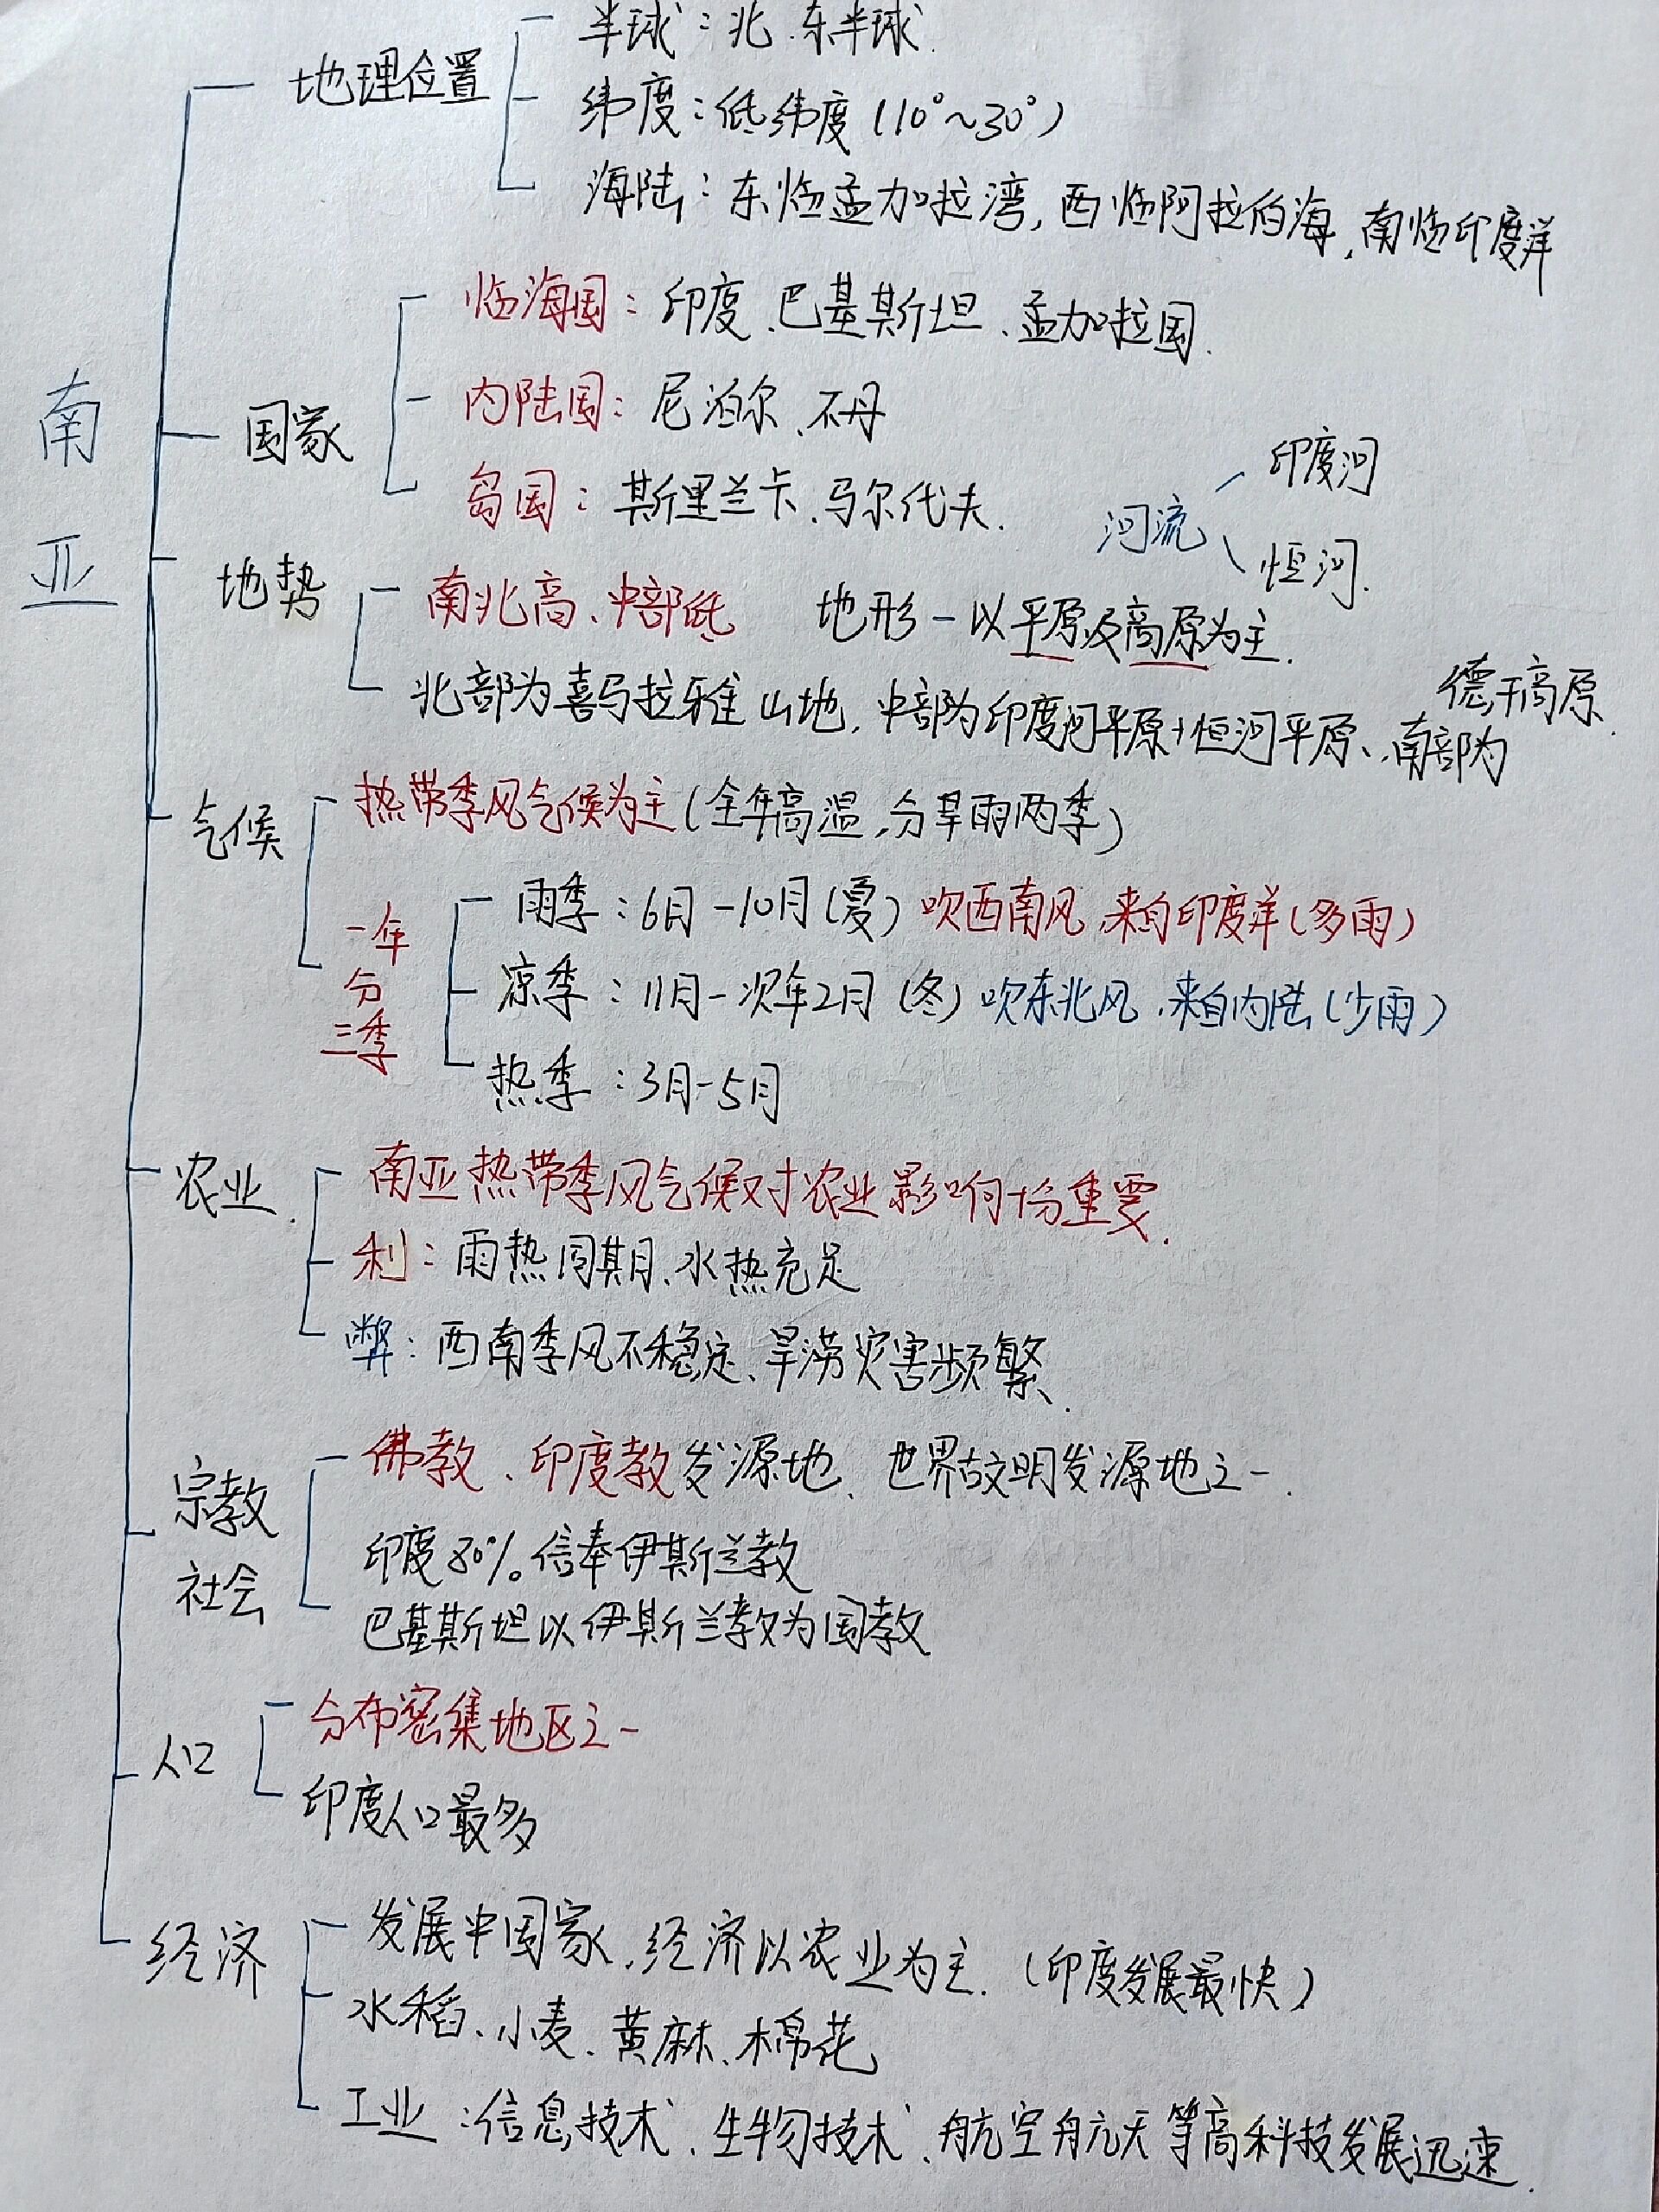 南亚
地理位置
半球：北、东半球
纬度：低纬度（10°~30°）
海陆：东临孟加拉湾，西临阿拉伯海，南临印度洋
国家
临海国：印度、巴基斯坦、孟加拉国.
内陆国：尼泊尔、不丹
岛国：斯里兰卡、马尔代夫.
河流
印度河
恒河.
地势
南北高、中部低
地形-以平原及高原为主.
北部为喜马拉雅山地，中部为印度河平原+恒河平原、南部为
德干高原.
气候
热带季风气候为主（全年高温，分旱雨两季）
一年
分
三季
雨季：6月-10月（夏）吹西南风，来自印度洋（多雨）
凉季：11月-次年2月（冬）吹东北风，来自内陆（少雨）
热季：3月-5月
农业.
南亚热带季风气候对农业影响十份重要.
利：雨热同期、水热充足
弊：西南季风不稳定、旱涝灾害频繁.
宗教
社会
佛教、印度教发源地、世界古文明发源地之一.
印度80%信奉伊斯兰教
巴基斯坦以伊斯兰教为国教
人口
分布密集地区之一
印度人口最多
经济
发展中国家，经济以农业为主.（印度发展最快）
水稻、小麦、黄麻、棉花
工业：信息技术、生物技术、航空航天等高科技发展迅速.